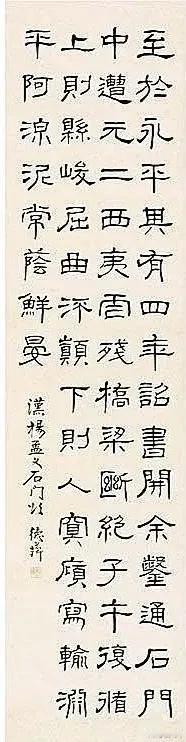 至於永平其有四年詔書開余鑿通石門
中遭元二西夷虐殘橋梁斷絕子午復循
上則縣峻屈曲流顛下則入冥廎寫輸淵
平阿湶泥常蔭鮮晏
漢楊孟文石門頌